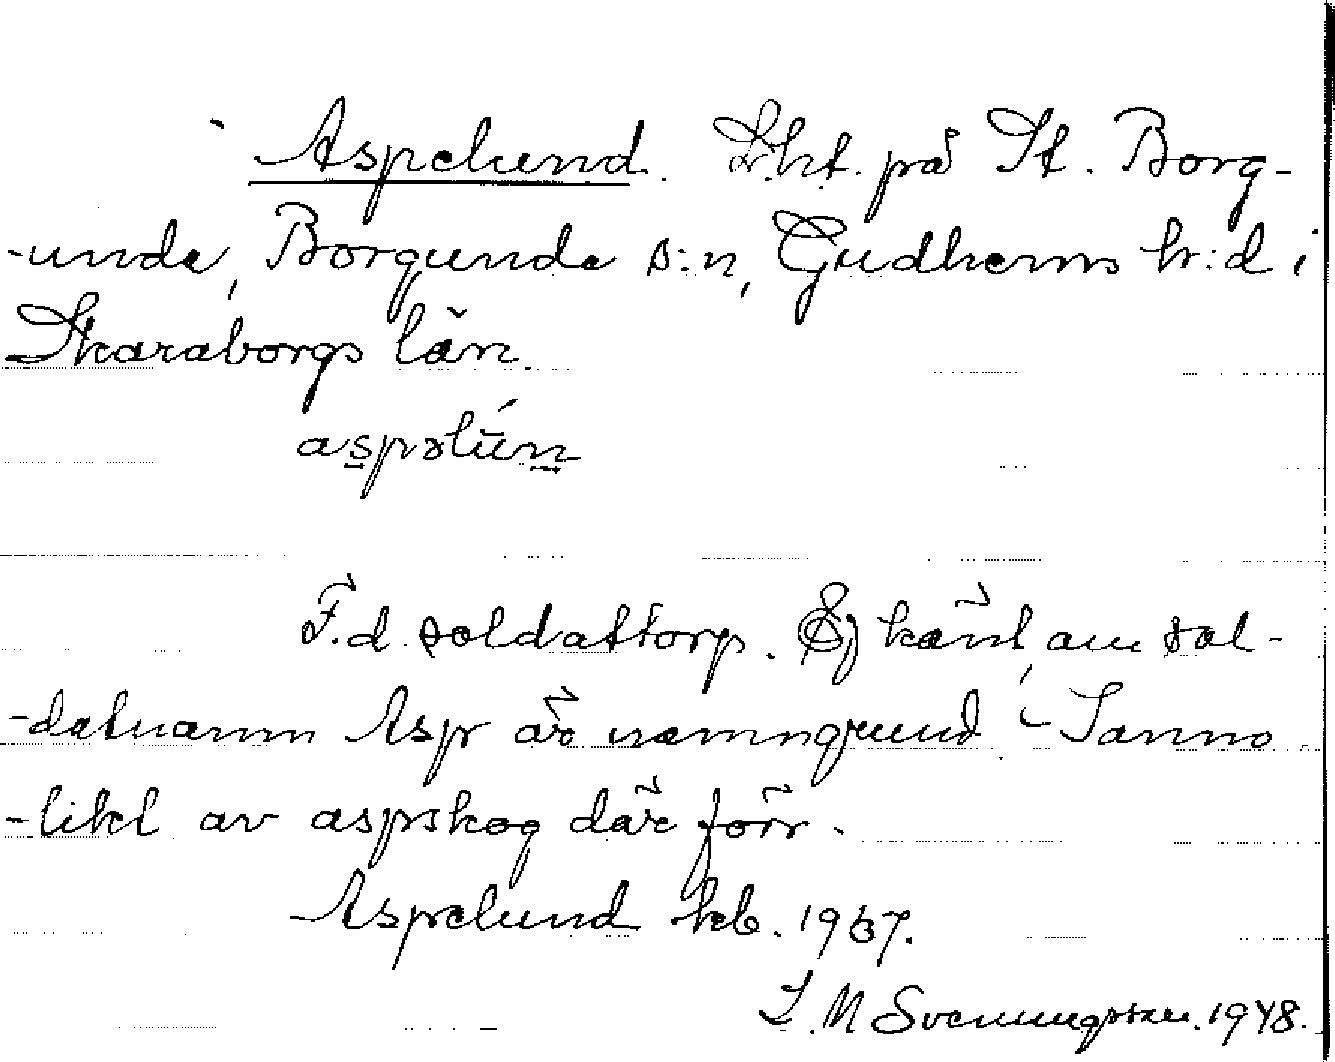 Aspelund. Lht. på St. Borg-
-unda, Borgunda s:n, Gudhems h:d i
Skaraborgs län.
aspəlún
F.d. soldattorp. Ej känt, om sol-
-datnamn Asp är namngrund - Sanno-
-likt av aspskog där förr.
Aspelund kb. 1937.
L. M Svenungsson. 1948.